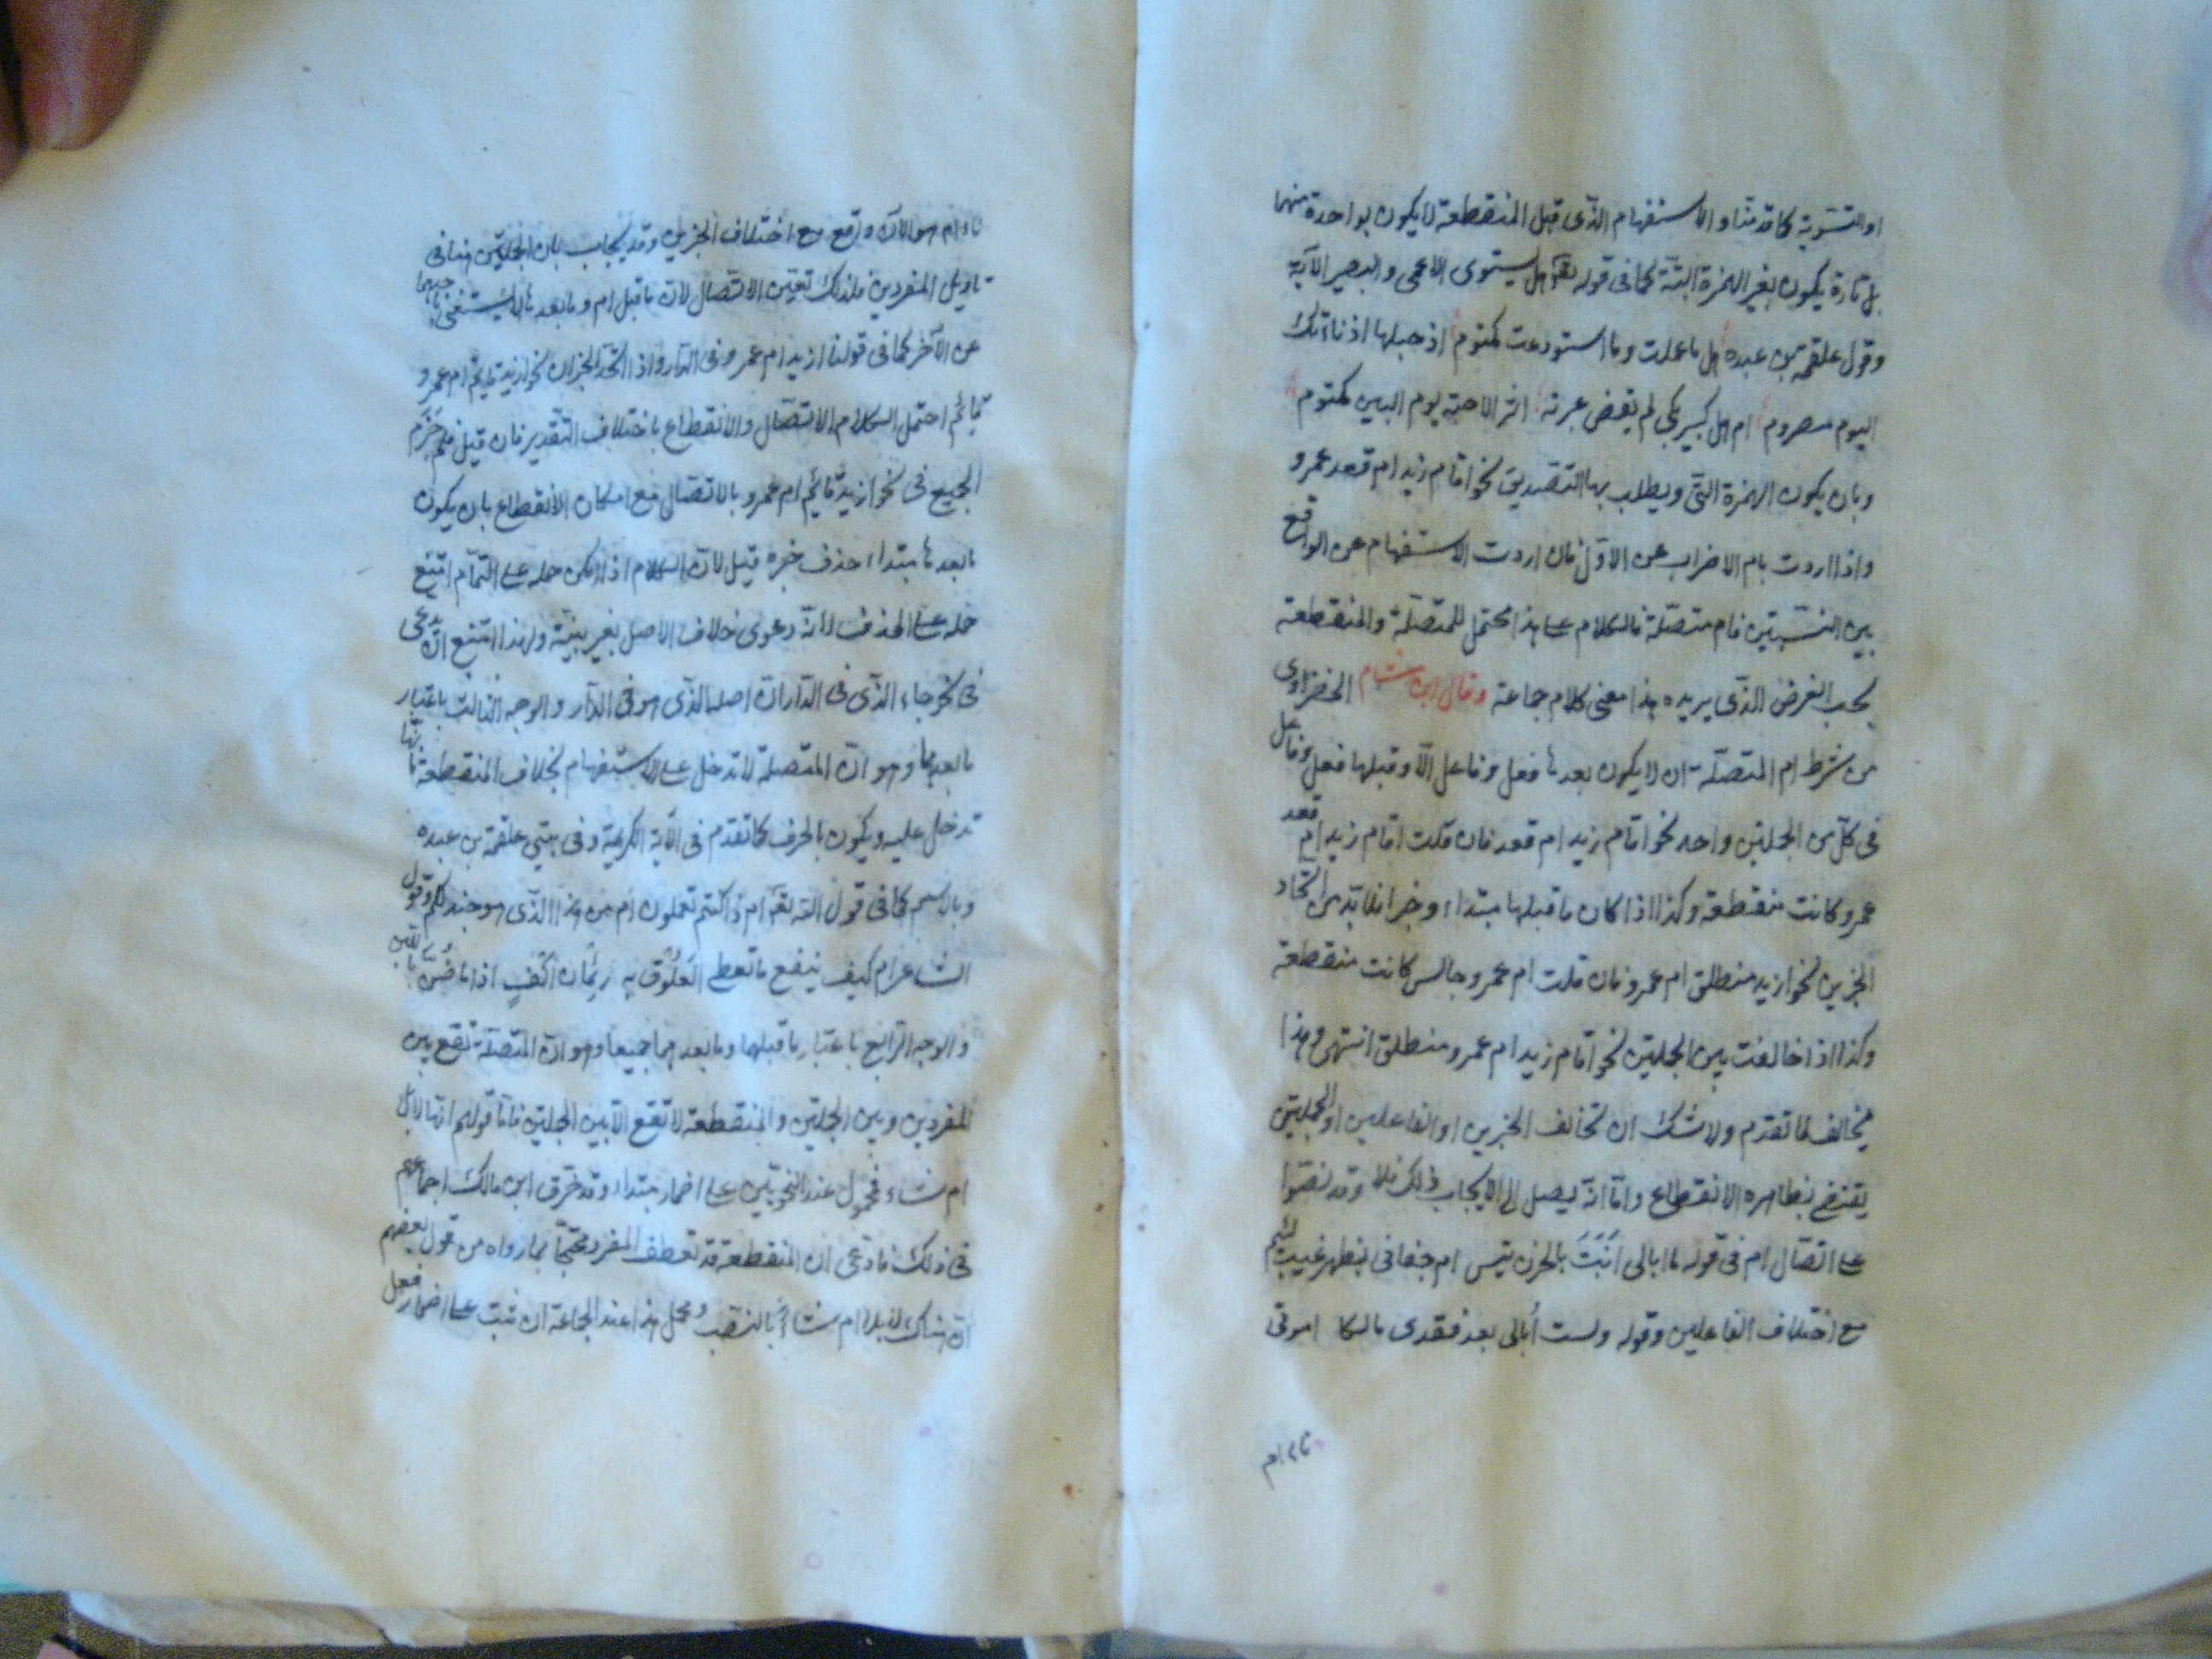 او التسوية كما قدمنا والاستفهام الذى قبل المنقطعة لا يكون بواحدة منهما
بل تارة يكون بغير الهمزة البتة كما فى قوله تعالى هل يستوى الاعمى والبصير الآية
وقول علقمة بن عبده هل ما علمت وما استودعت مكتوم اذ حبلها اذ ناتك
اليوم مصروم ام هل كبير بكى لم يقض عبرته اثر الاحبة يوم البين مكتوم
وبان يكون الهمزة التى ويطلب بها التصديق نحو اقام زيد ام قعد عمرو
واذا اردت بام الاضراب عن الاول فان اردت الاستفهام عن الواقع
بين النسبتين فام متصلة فالكلام على هذا محتمل للمتصلة والمنقطعة
بحسب الغرض الذى يريده هذا معنى كلام جماعة وقال ابن هشام الخضراوى
من شرط ام المتصلة ان لا يكون بعدها فعل وفاعل الا وقبلها فعل وفاعل
فى كل من الجملتين واحد نحو اقام زيد ام قعد فان قلت اقام زيد ام قعد
عمرو كانت منقطعة وكذا اذا كان ما قبلها مبتداء وخبر فلا بد من اتحاد
الخبرين نحو ازيد منطلق ام عمرو فان قلت ام عمرو جالس كانت منقطعة
وكذا اذا خالفت بين الجملتين نحو اقام زيد ام عمرو منطلق انتهى وهذا
مخالف لما تقدم ولا شك ان تخالف الخبرين او الفاعلين او الجملتين
يقتضى بظاهره الانقطاع واما انه يصل الى الايجاب ذلك فلا وقد نصوا
على اتصال ام فى قوله ما ابالى اَنَبَّ بالحزن تيس ام جفانى بظهر غيب لئيم
مع اختلاف الفاعلين وقوله ولست اُبالى بعد فقدى مالكا اموتى
ناء ام
ناء ام هو الآن واقع مع اختلاف الخبرين وقد يجاب بان الجملتين هنا فى
تاويل المفردين فلذلك تعين الاتصال لان ما قبل ام وما بعدها لا يستغنى باحدهما
عن الآخر كما فى قولنا ازيد ام عمرو فى الدار واذا اتحد الخبران نحو ازيد قايم ام عمرو
قائم احتمل الكلام الاتصال والانقطاع باختلاف التقدير فان قيل فلم جزم
الجميع فى نحو ازيد قائم ام عمرو بالاتصال مع امكان الانقطاع بان يكون
ما بعدها مبتداء حذف خبره قيل لان الكلام اذا امكن حمله على التمام امتنع
حمله على الحذف لانه دعوى خلاف الاصل بغير بينة ولهذا امتنع ان يدعى
فى نحو جاء الذى فى الدار ان اصله الذى هو فى الدار والوجه الثالث باعتبار
ما بعدها وهو ان المتصلة لا تدخل على الاستفهام بخلاف المنقطعة فانها
تدخل عليه ويكون بالحرف كما تقدم فى الآية الكريمة وفى بيتى علقمة بن عبده
وبالاسم كما فى قول الله تعالى ام ذا كنتم تعملون ام من هذا الذى هو جند لكم وقول
الشاعر ام كيف ينفع ما تعطى العَلُوق به رئمان انف اذا ما ضُنّ باللبن
والوجه الرابع باعتبار ما قبلها وما بعدها جميعا وهو ان المتصلة تقع بين
المفردين وبين الجملتين والمنقطعة لا تقع الا بين الجملتين فاما قولهم انها لابل
ام شاء فمحمول عند النحويين على اضمار مبتداء وقد خرق ابن مالك اجماعهم
فى ذلك فادعى ان المنقطعة قد تعطف المفرد محتجا بما رواه من قول بعضهم
ان هناك لابلا ام شاءً بالنصب ومحمل هذا عند الجماعة ان ثبت على اضمار فعل